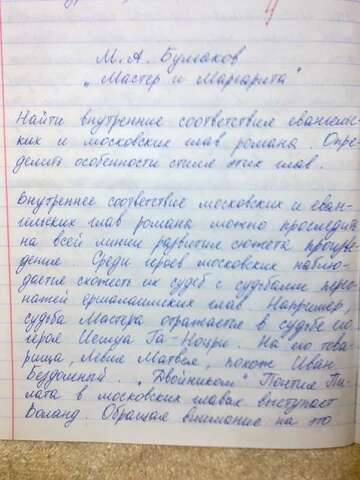 М. А. Булгаков
„Мастер и Маргарита"
Найти внутренние соответствия евангельс-
ких и московских глав романа. Опре-
делить особенности стиля этих глав.
Внутреннее соответствие московских и еван-
гельских глав романа можно проследить
на всей линии развития сюжета произве-
дение. Среди героев московских наблю-
дается схожесть их судеб с судьбами перс-
нажей ершалаимских глав. Например,
судьба Мастера отражается в судьбе его
героя Иешуа Га-Ноцри. На его това-
рища, Левия Матвея, похож Иван
Бездомный. „Двойником" Понтия Пи-
лата в московских главах выступает
Воланд. Обращая внимание на это